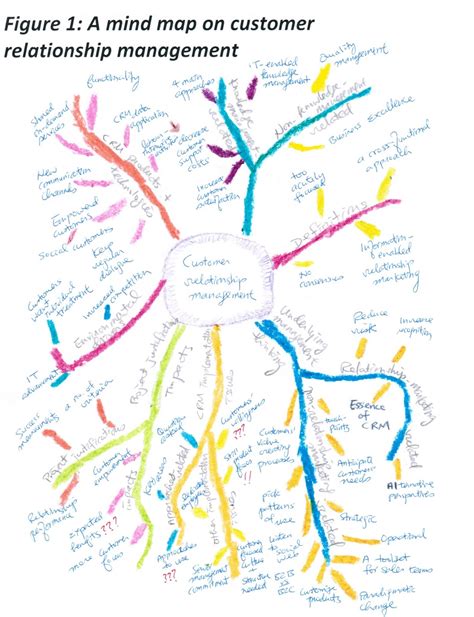 Figure 1: A mind map on customer
relationship management
Customer
relationship
management
functionality
CRM data
application
Shared
on-demand
services
New
communication
channels
Empowered
customers
Social customers
CRM products +
technologies
4 main
approaches
decrease
customer
support
costs
Increase
customer
satisfaction
IT-enabled
knowledge
management
Quality
management
Non knowledge
management
related
Business Excellence
Definitions
a cross-functional
approach
too
acutely
focused
Information-
enabled
relationship
marketing
No
consensus
Environmental
Keep
regular
dialogue
increased competition
Customers
want
individual
treatment
IT
advancement
Project justification +
impacts
Project justification
a no of
criteria
Success
measurements
Relationship
performance
impacts
Customer
empowerment
expected
benefits ???
more customer
focus
CRM implementation
issues
related
Approaches
to use
???
Customers'
willingness
???
Senior
management
commitment
Underlying
management
thinking
Relationship marketing
related
Reduce
risk
Increase
recognition
Essence
of CRM
Alternative
perspectives
Non relationship marketing
related
Customer
value
creating
processes
touch
points
Anticipate
customer
needs
Pick
patterns
of use
Listen to
social
web
B2B
vs
B2C
Customize
products
Strategic
Operational
A toolset
for sales teams
Paradigmatic
change